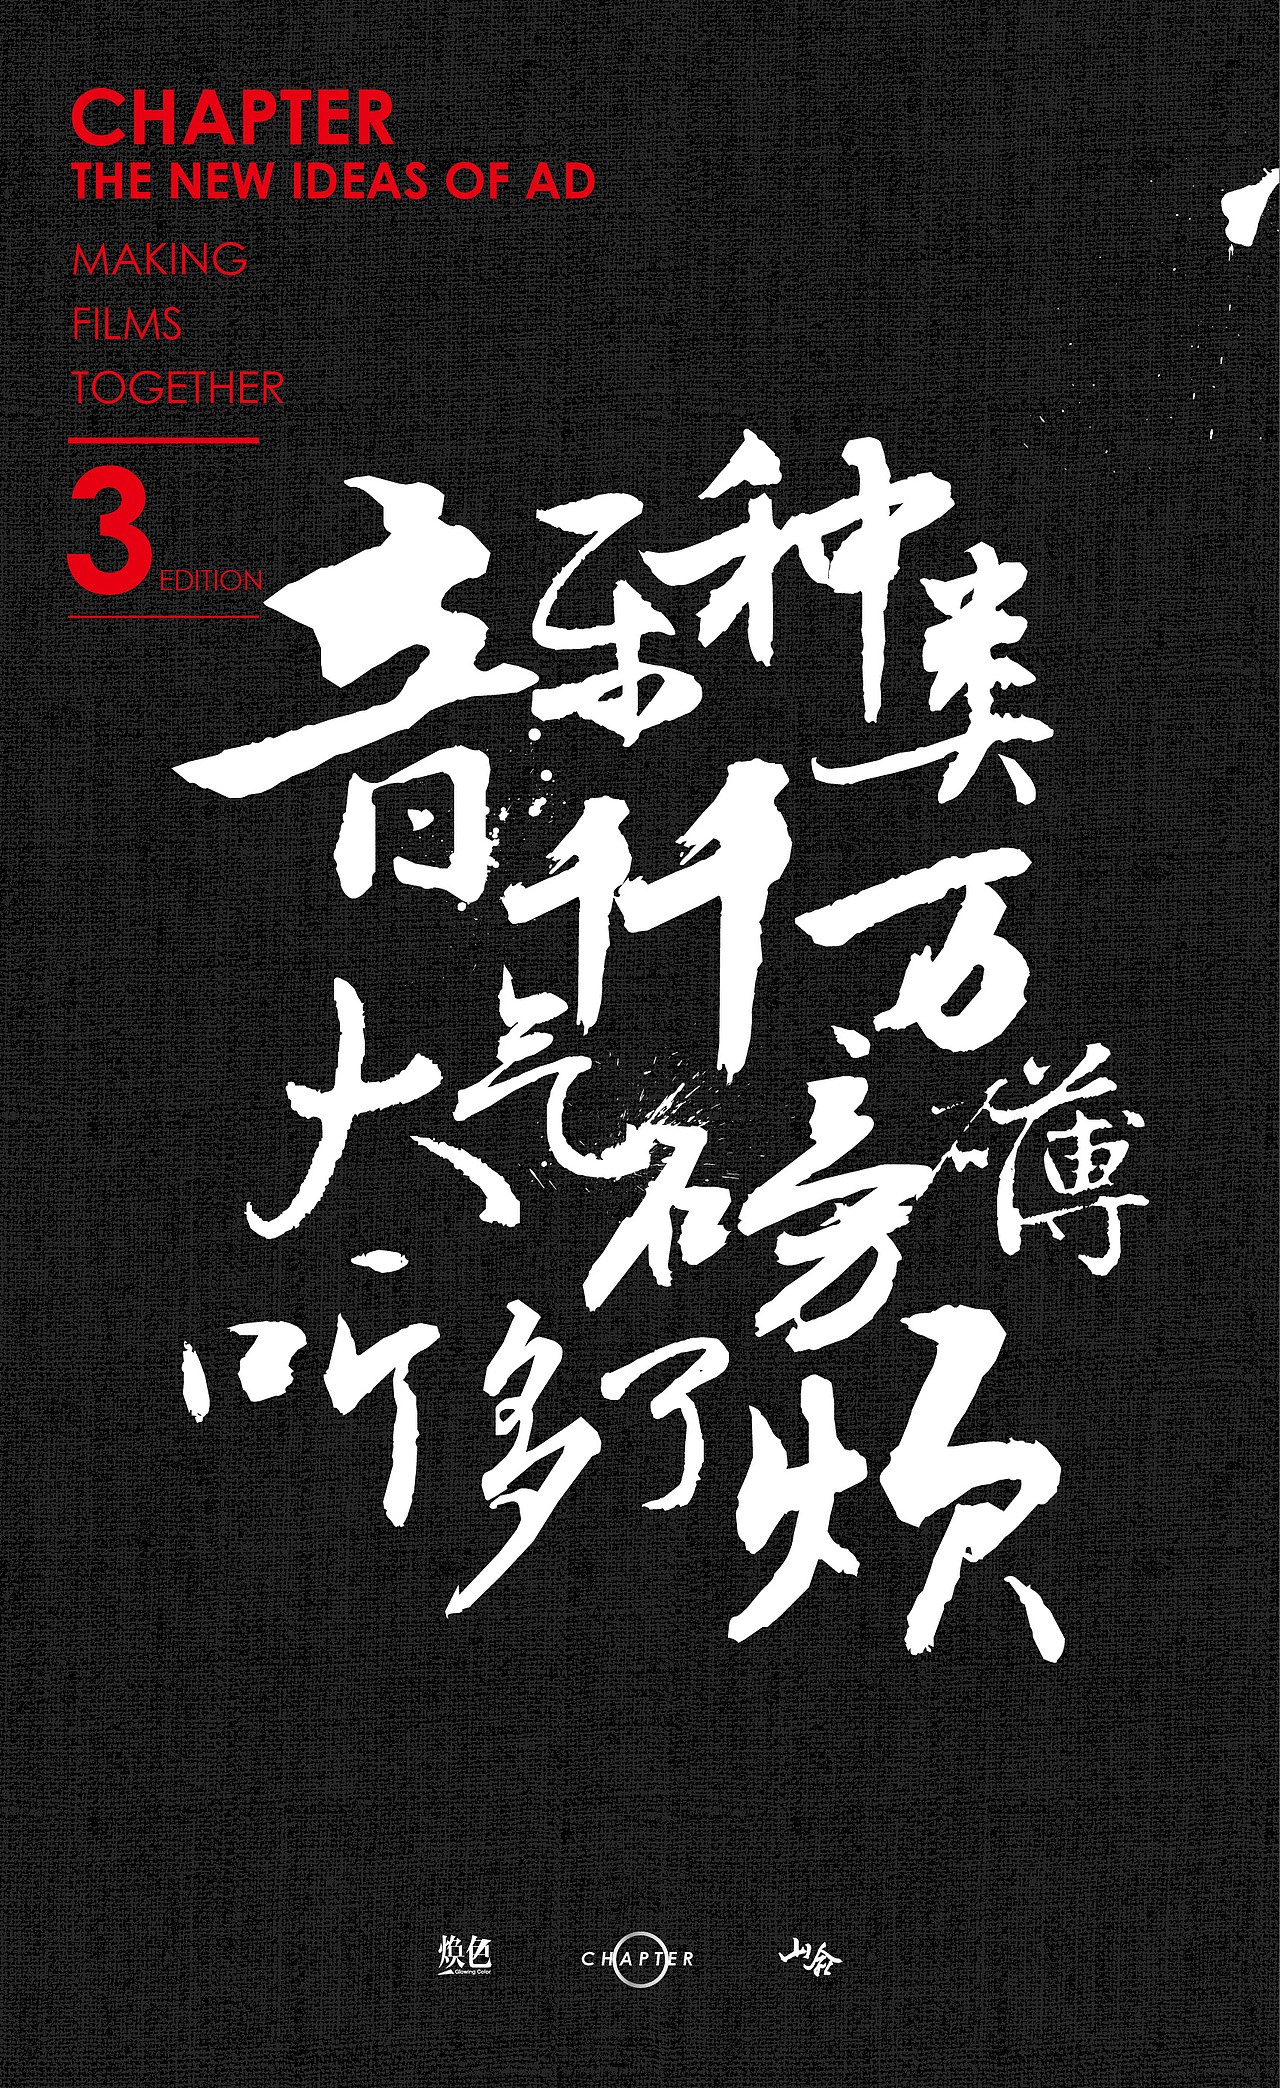 CHAPTER
THE NEW IDEAS OF AD
MAKING
FILMS
TOGETHER
3 EDITION
音乐种类
千千万
大气磅礴
听多了烦
焕色
Glowing Color
CHAPTER